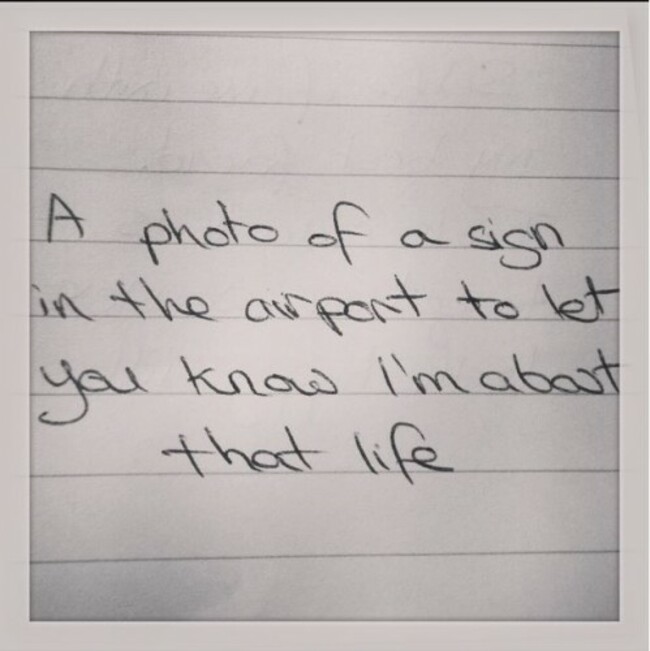 A photo of a sign
in the airport to let
you know i'm about
that life